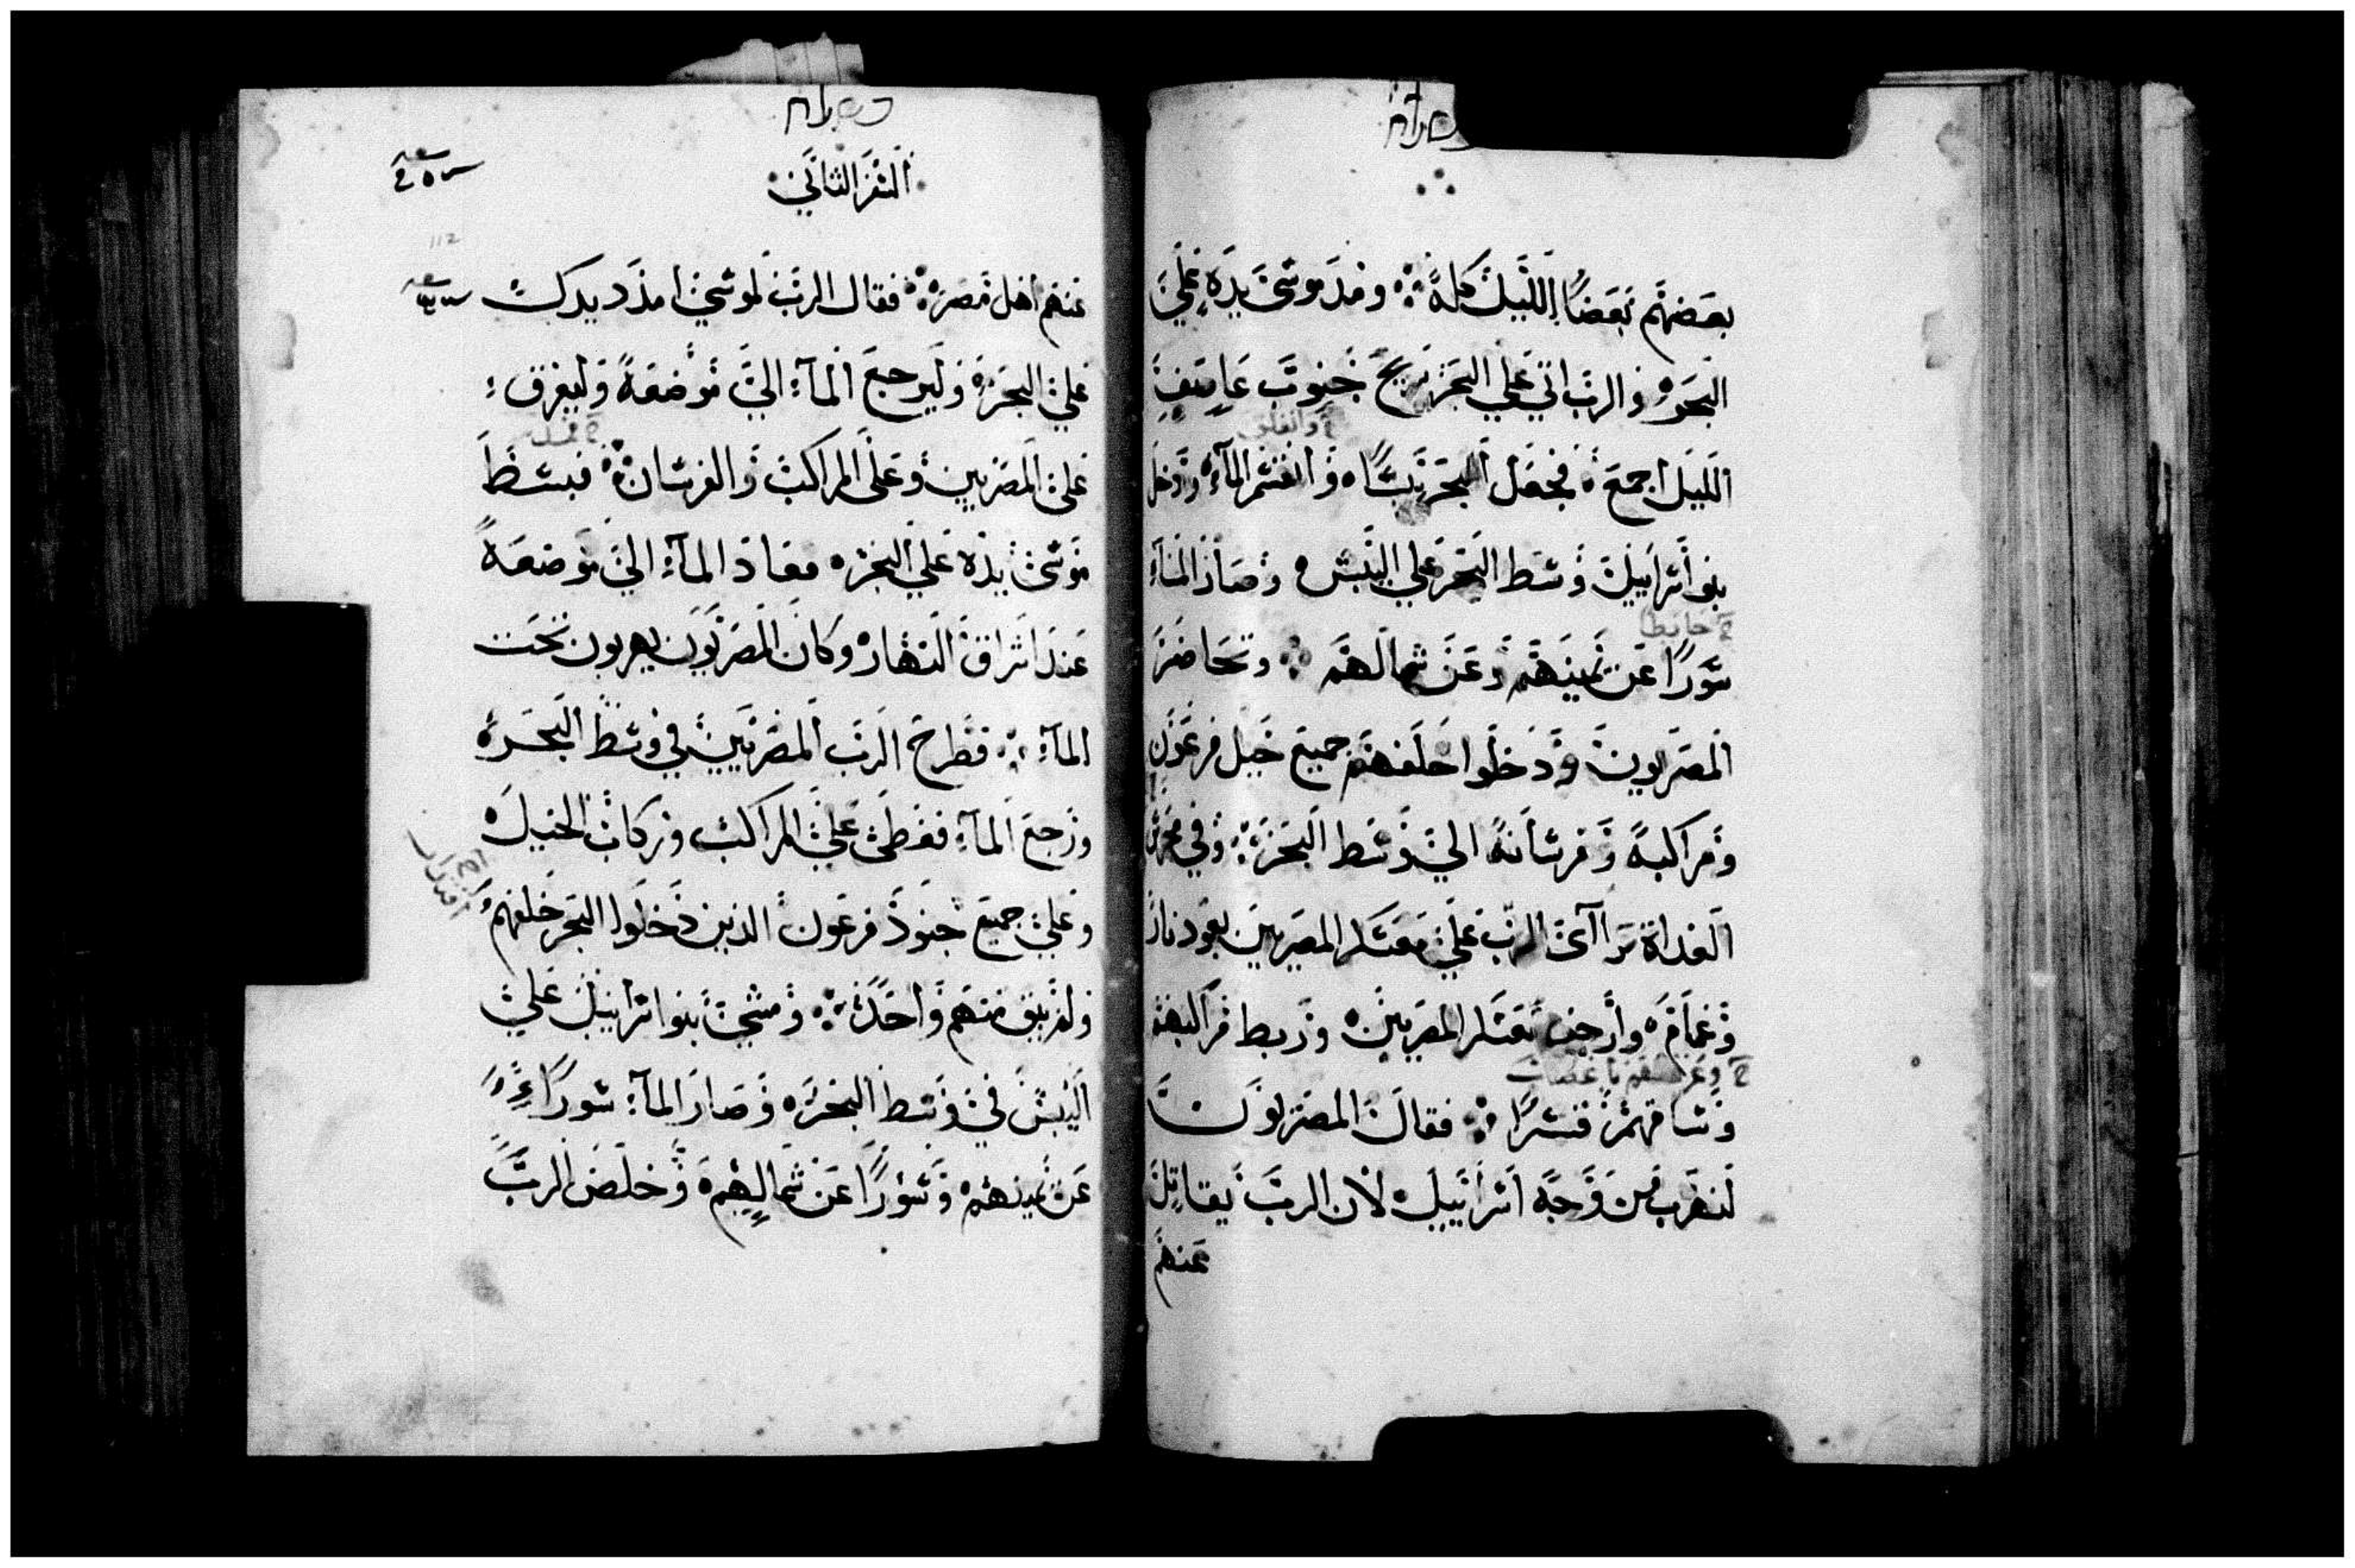 بعضهم بعضًا الليل كله ومد موسى يده علي
البحر والرب اتي علي البحر بريح جنوب عاصف
وانفلق
الليل اجمع فجعل البحر يبسًا وانقسم المآء ودخل
بنو اسراييل وسط البحر علي اليبس وصار المآء
حايطا
سورًا عن يمينهم وعن شمالهم وتحاضر
المصريون ودخلوا خلفهم جميع خيل فرعون
ومراكبه وفرسانه الي وسط البحر وفي محرس
الغداة ترآى الرب علي معسكر المصريين بعود نار
وغمام وارجف معسكر المصريين وربط مراكبهم
وساقهم قسرًا فقال المصريون
لنهرب من وجه اسراييل لان الرب يقاتل
عنهم
السفر الثاني
112
عنهم اهل مصر فقال الرب لموسي امدد يدك
علي البحر وليرجع المآء الي موضعه وليغرق
علي المصريين وعلى المراكب والفرسان فبسط
موسى يده علي البحر فعاد المآء الي موضعه
عند اشراق النهار وكان المصريون يهربون تحت
المآء فطرح الرب المصريين في وسط البحر
ورجع المآء فغطى علي المراكب وركاب الخيل
وعلي جميع جنود فرعون الذين دخلوا البحر خلفهم
ولم يبق منهم واحد ومشى بنو اسراييل علي
اليبس في وسط البحر وصار المآء سورًا
عن يمينهم وسورًا عن شمالهم وخلص الرب